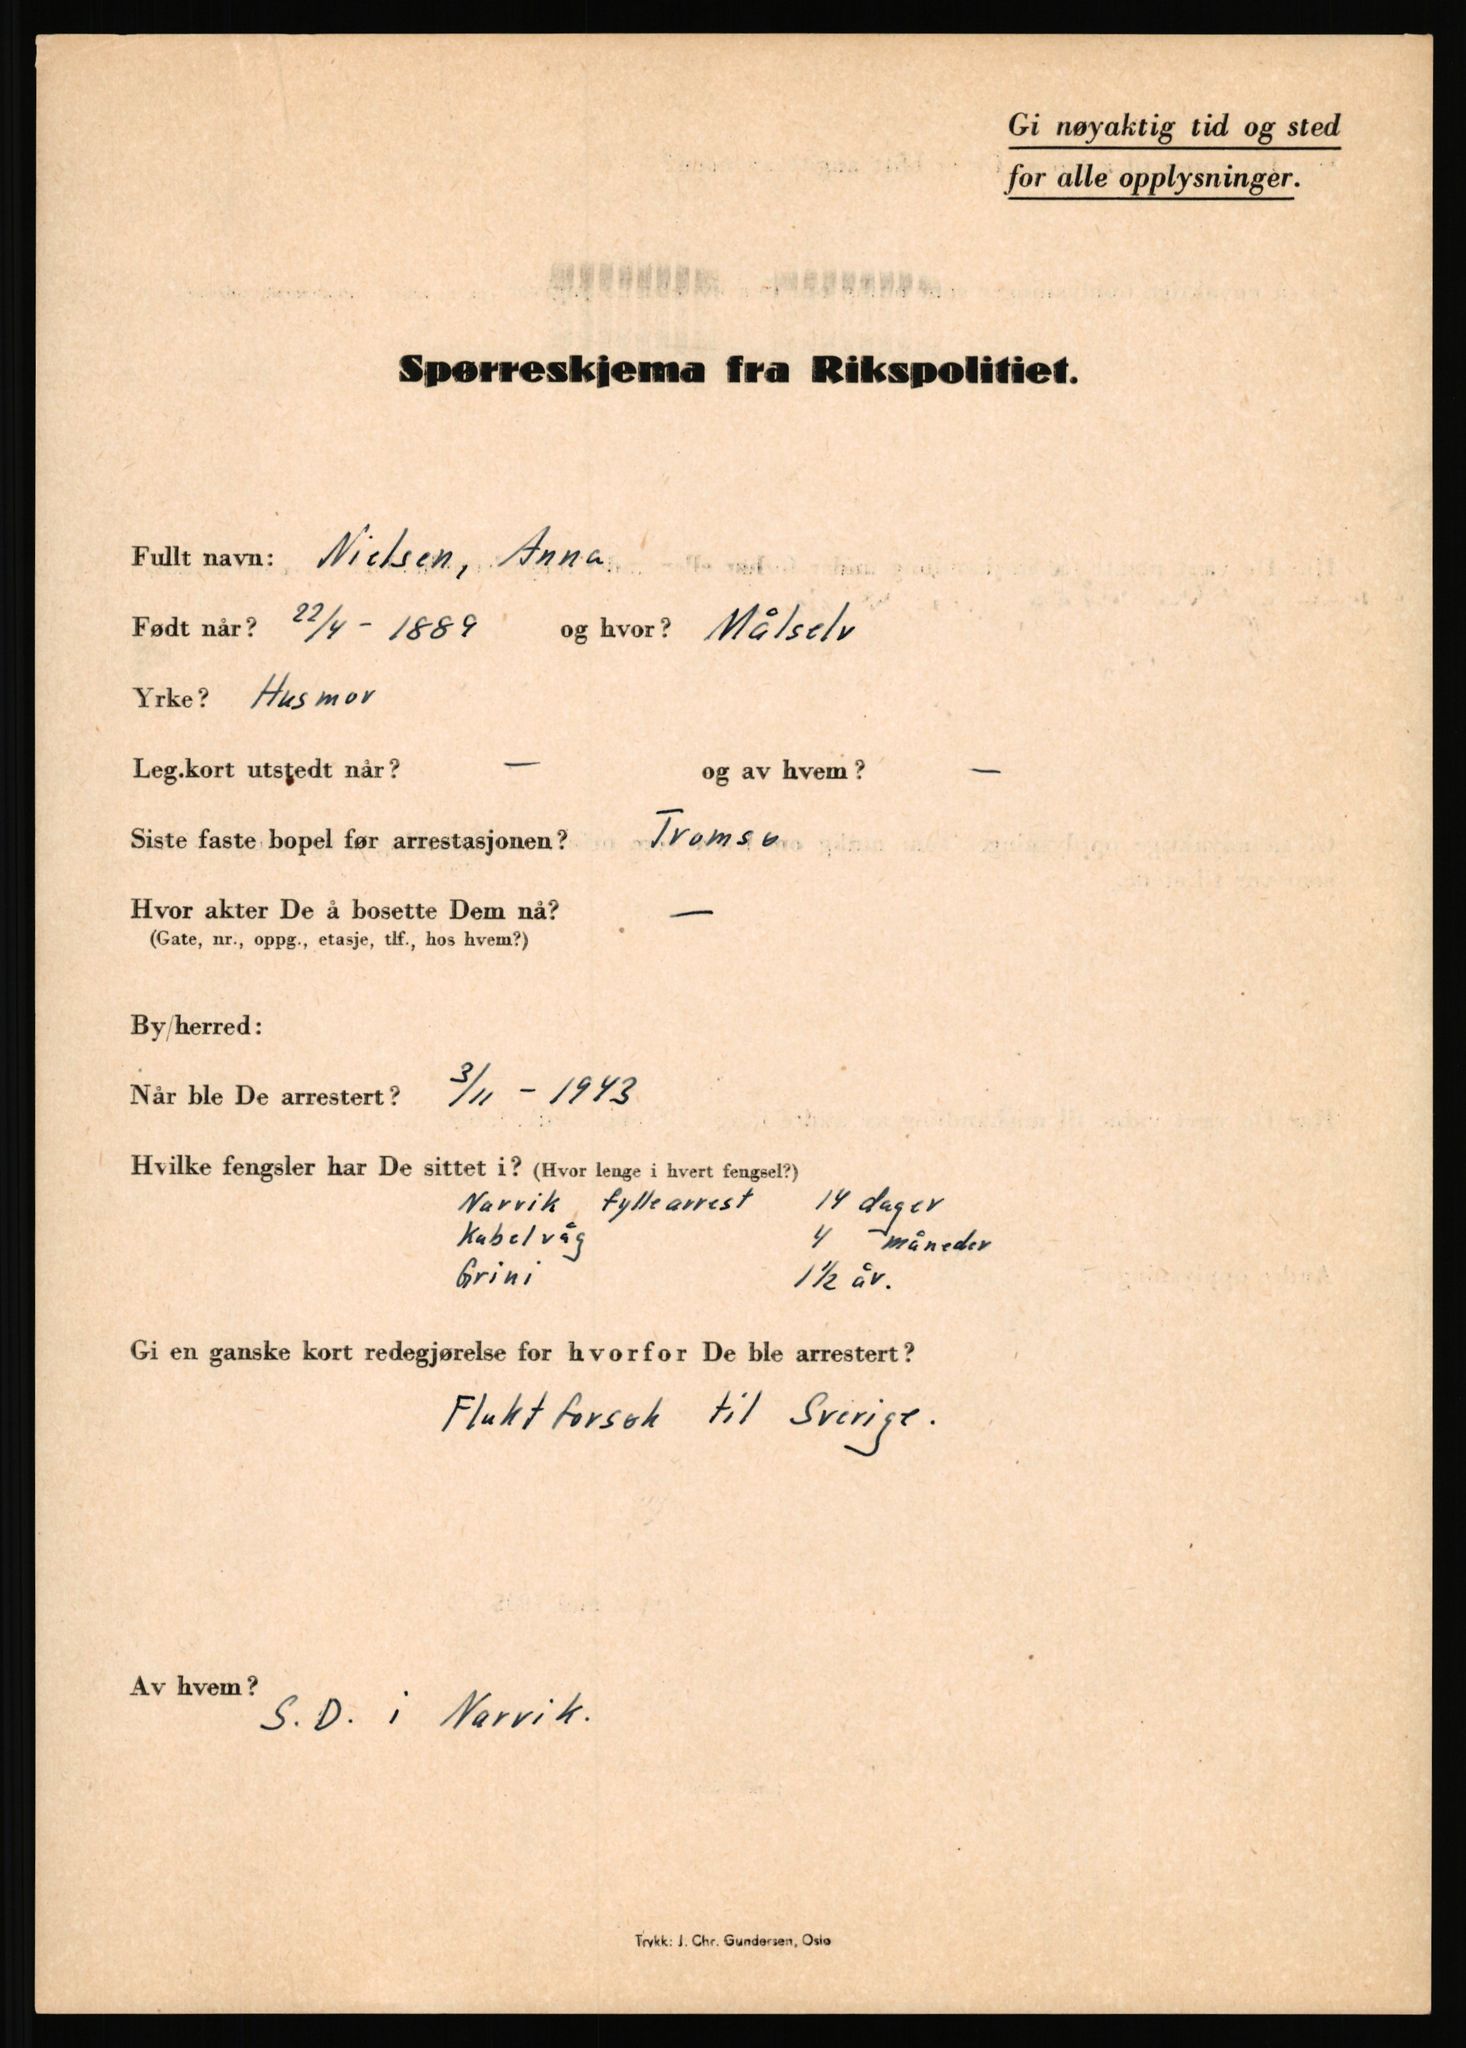 Gi nøyaktig tid og sted
for alle opplysninger.
Spørreskjema fra Rikspolitiet.
Fullt navn: Nielsen, Anna
Født når? 22/4 - 1889 og hvor? Målselv
Yrke? Husmor
Leg.kort utstedt når? — og av hvem? —
Siste faste bopel før arrestasjonen? Tromsø
Hvor akter De å bosette Dem nå? —
(Gate, nr., oppg., etasje, tlf., hos hvem?)
By/herred:
Når ble De arrestert? 3/11 - 1943
Hvilke fengsler har De sittet i? (Hvor lenge i hvert fengsel?)
Narvik fyllearrest 14 dager
Kabelvåg 4 måneder
Grini 1 1/2 år.
Gi en ganske kort redegjørelse for hvorfor De ble arrestert?
Fluktforsøk til Sverige.
Av hvem?
S.D. i Narvik.
Trykk: J. Chr. Gundersen, Oslo